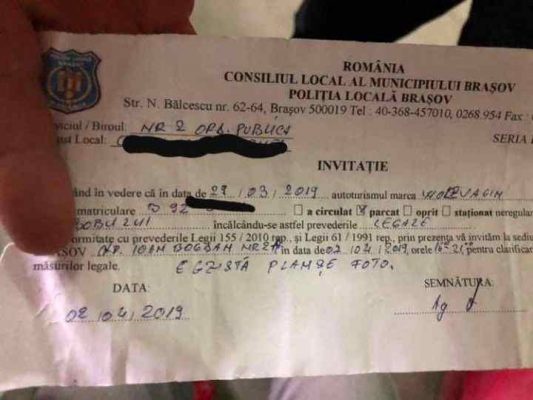 ROMÂNIA
CONSILIUL LOCAL AL MUNICIPIULUI BRAȘOV
POLIȚIA LOCALĂ BRAȘOV
Str. N. Bălcescu nr. 62-64, Brașov 500019 Tel : 40-368-457010, 0268.954 Fax
viciul / Biroul: NR 2 ORD. PUBLICA
st Local:
SERIA
INVITAȚIE
and în vedere că în data de 29 / 03 / 2019 autoturismul marca
matriculare 92 a circulat parcat oprit staționat neregul
încălcându-se astfel prevederile LEGALE
ormitate cu prevederile Legii 155 / 2010 rep., și Legii 61 / 1991 rep., prin prezența vă invităm la sediu
AȘOV NR. IOAN BOGDAN NR 2 în data de 02/04/2019, orele pentru clarificar
măsurilor legale. EGZISTĂ PLANȘE FOTO.
DATA
SEMNĂTURA:
02 / 04 / 2019
Ag